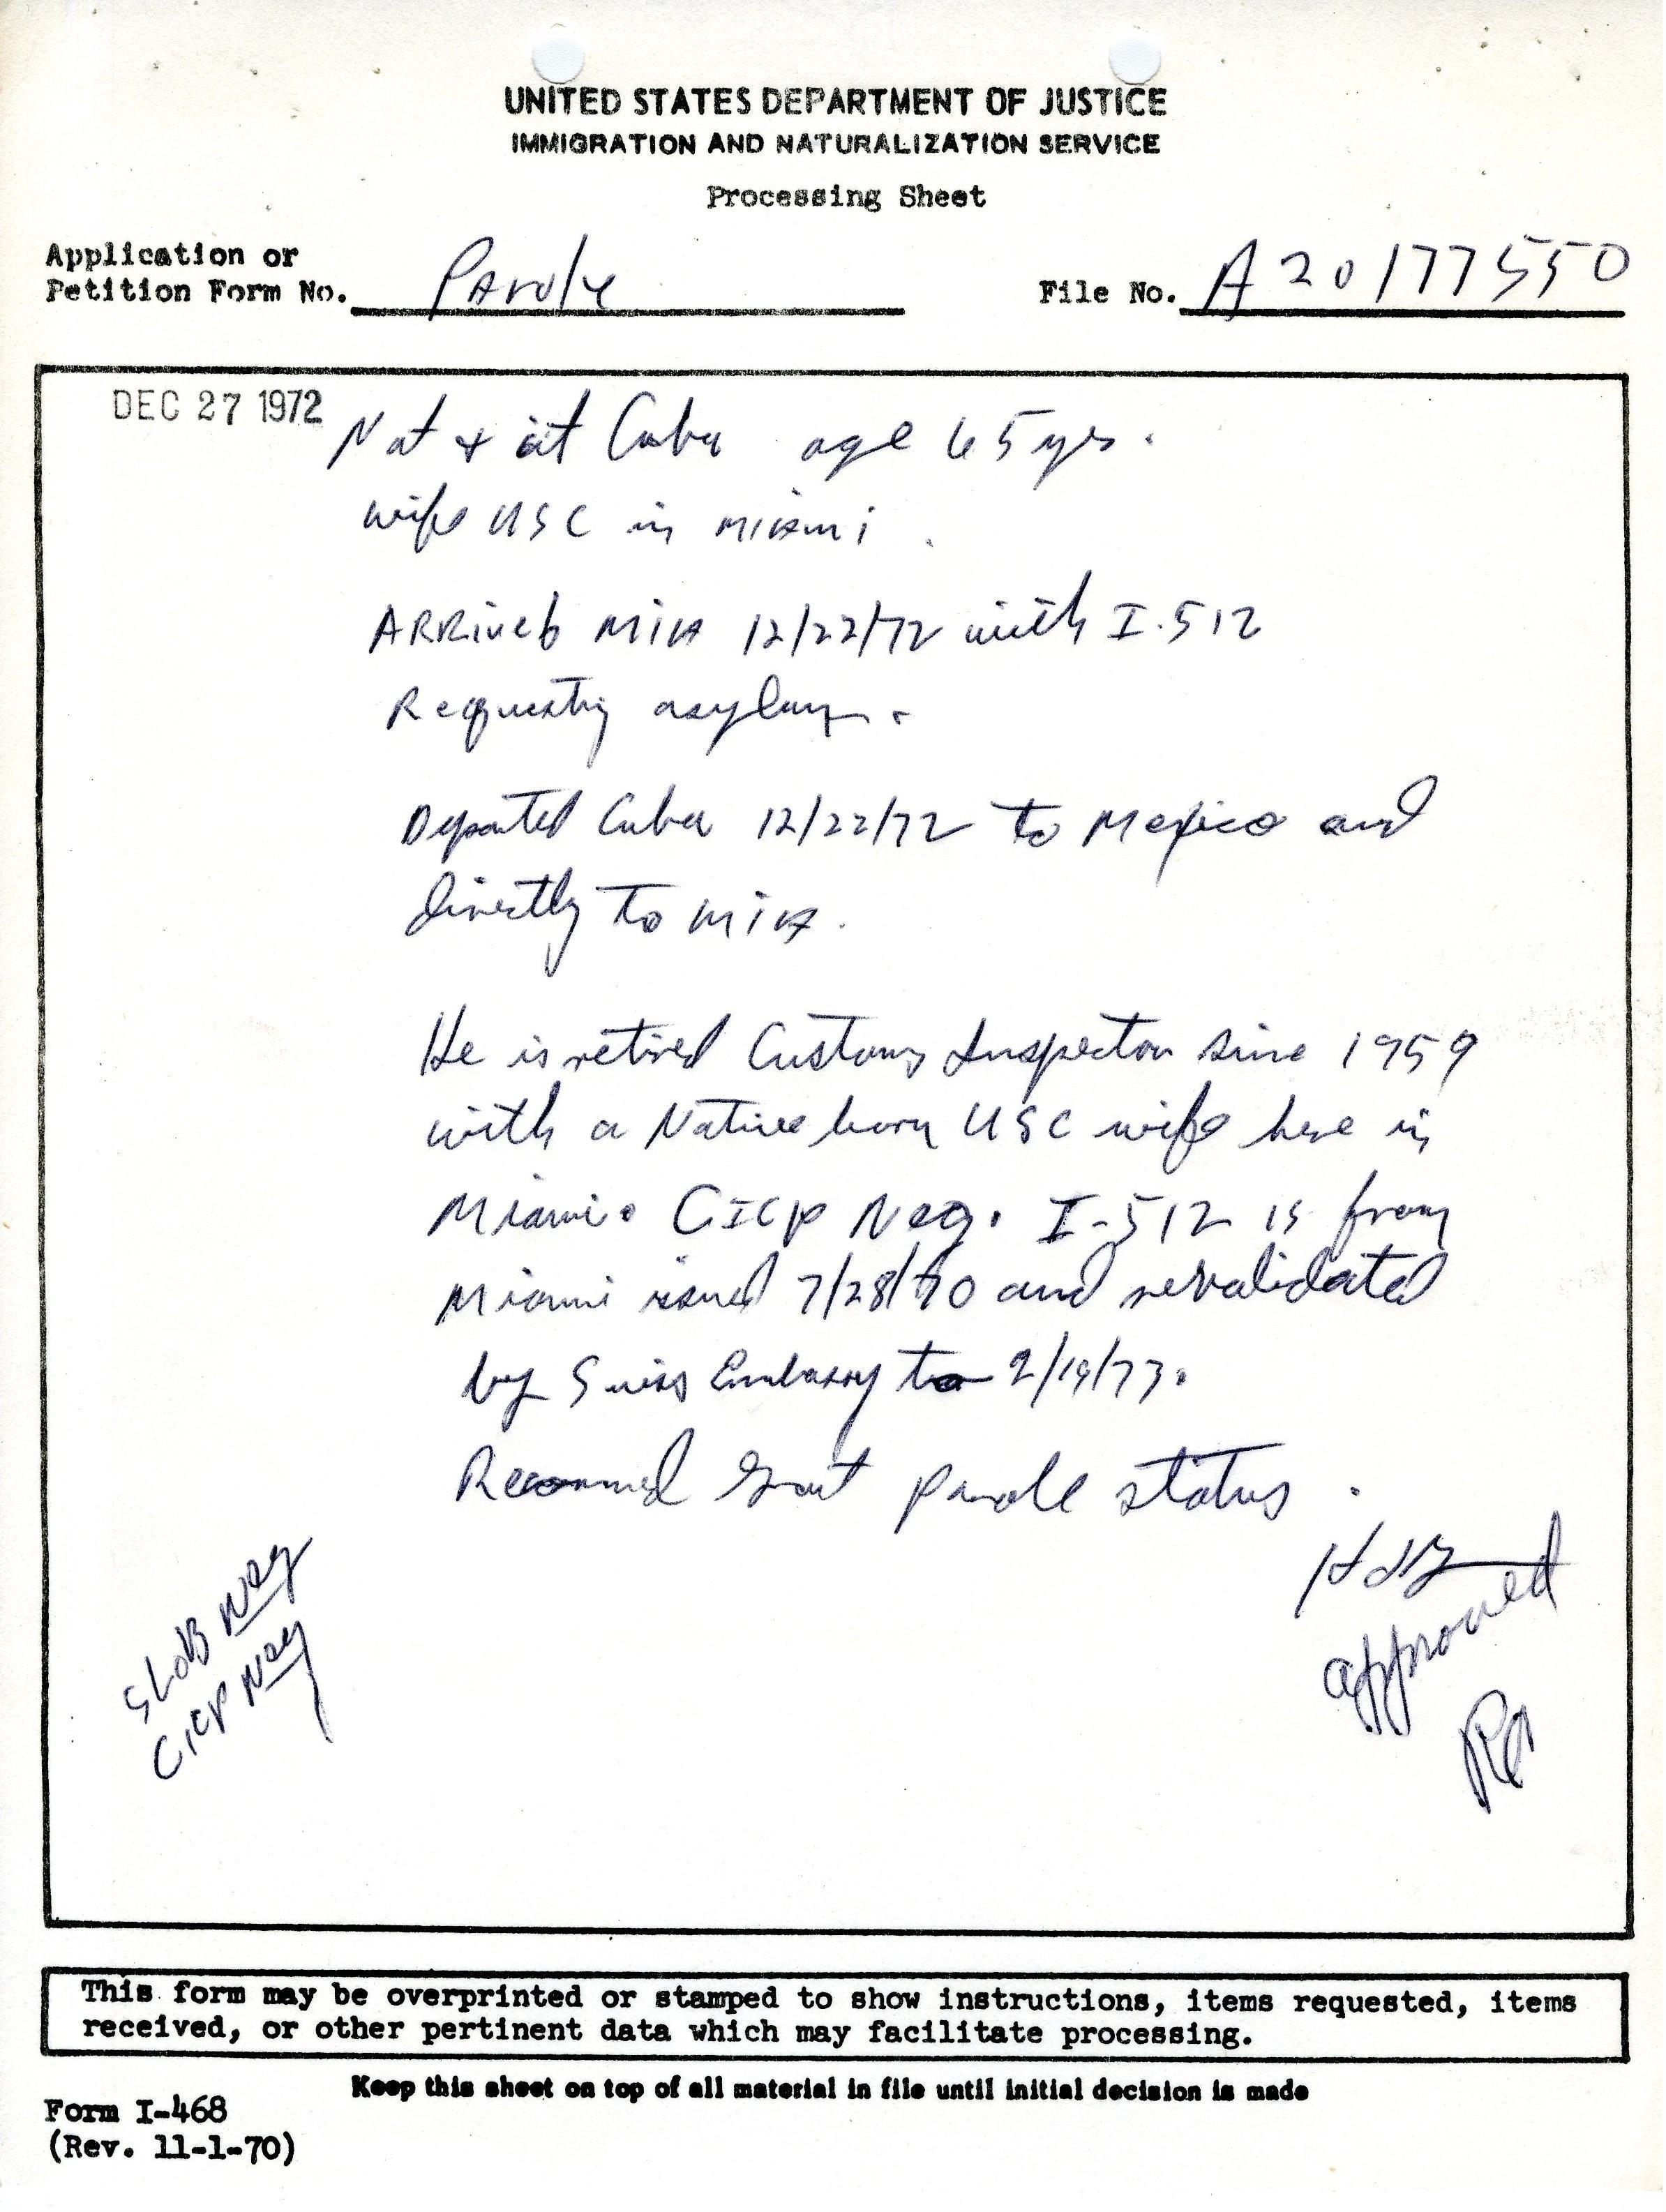 UNITED STATES DEPARTMENT OF JUSTICE
IMMIGRATION AND NATURALIZATION SERVICE
Processing Sheet
Application or
Petition Form No. Parole File No. A20177550
DEC 27 1972
Nat & cit Cuba age 65 yrs.
wife USC in Miami.
ARRived MIA 12/22/72 with I-512
Requesting asylum.
Departed Cuba 12/22/72 to Mexico and
directly to MIA.
He is retired Customs Inspector since 1959
with a Native born USC wife here in
Miami. CICP Neg. I-512 is from
Miami issued 7/28/70 and revalidated
by Swiss Embassy to 2/19/73.
Recommend Grant parole status.
approved
SLOB Neg
CICP Neg
This form may be overprinted or stamped to show instructions, items requested, items
received, or other pertinent data which may facilitate processing.
Keep this sheet on top of all material in file until initial decision is made
Form I-468
(Rev. 11-1-70)